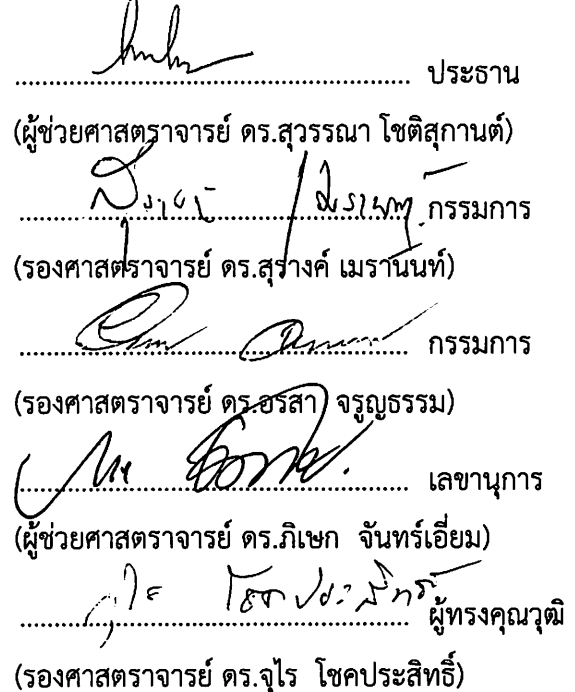 ........................................ ประธาน
(ผู้ช่วยศาสตราจารย์ ดร.สุวรรณา โชติสุกานต์)
........................................ กรรมการ
(รองศาสตราจารย์ ดร.สุรางค์ เมรานนท์)
........................................ กรรมการ
(รองศาสตราจารย์ ดร.อรสา จรูญธรรม)
........................................ เลขานุการ
(ผู้ช่วยศาสตราจารย์ ดร.ภิเษก จันทร์เอี่ยม)
จุไร โชคประสิทธิ์ ผู้ทรงคุณวุฒิ
(รองศาสตราจารย์ ดร.จุไร โชคประสิทธิ์)